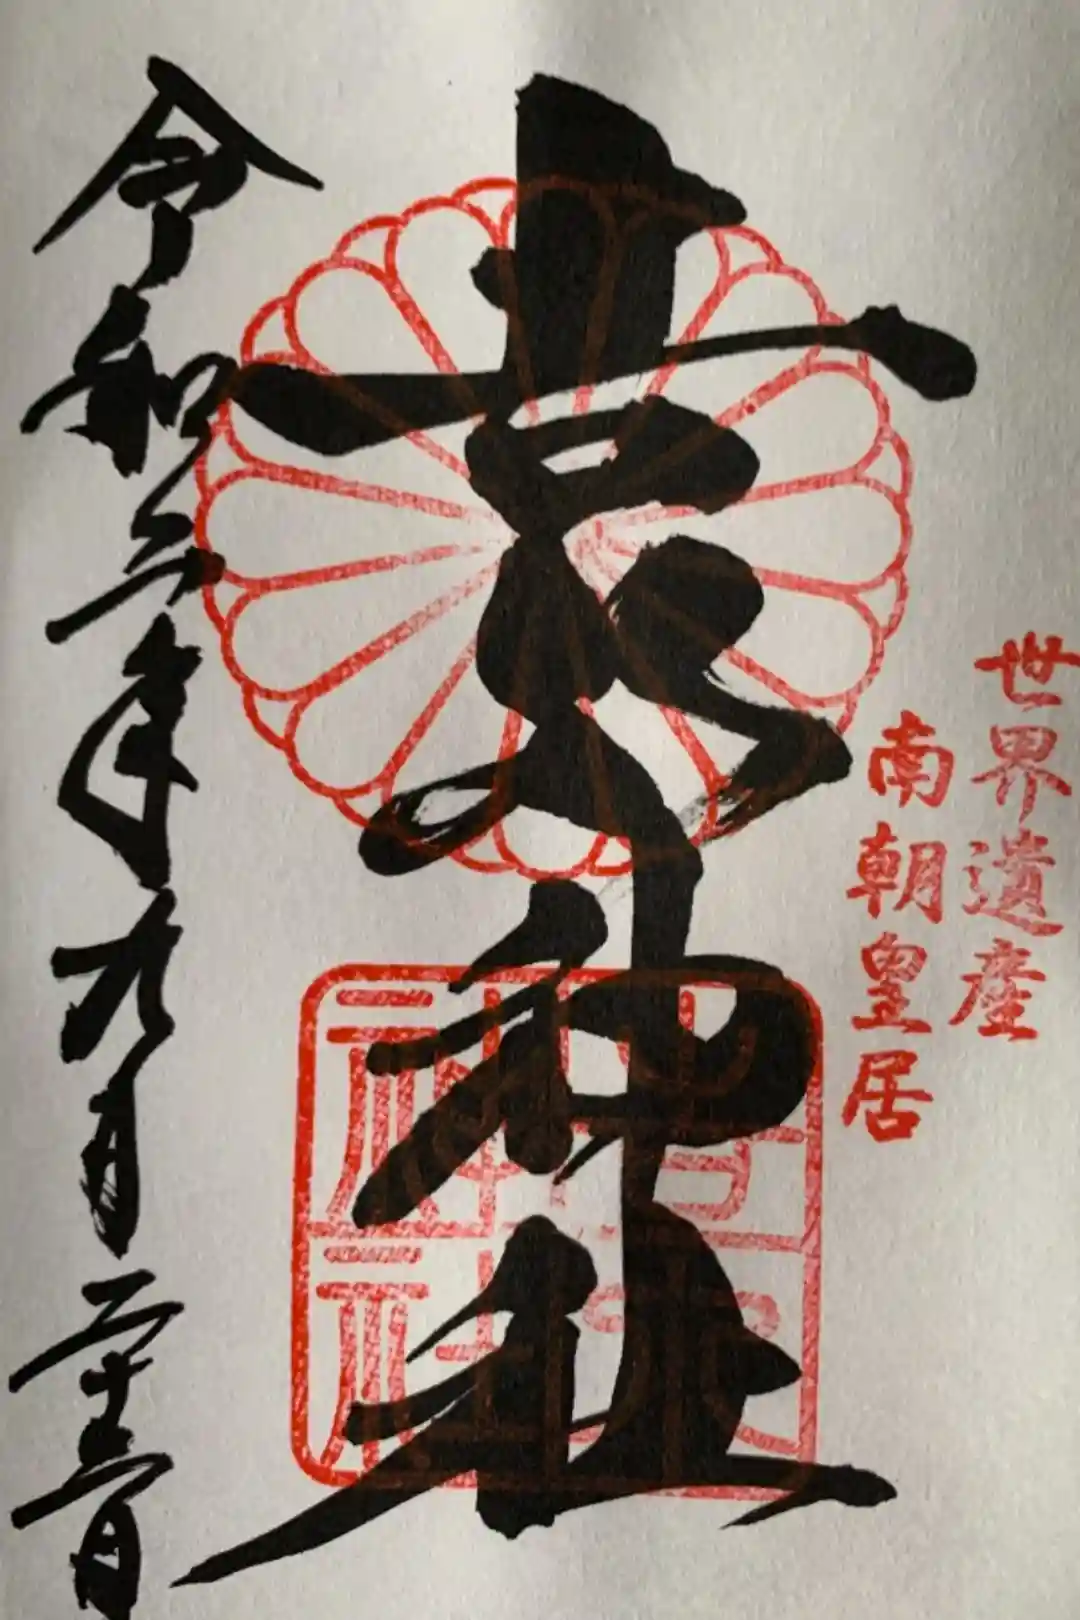 世界遺産
南朝皇居
吉水神社
吉水神社
令和三年九月二十三日